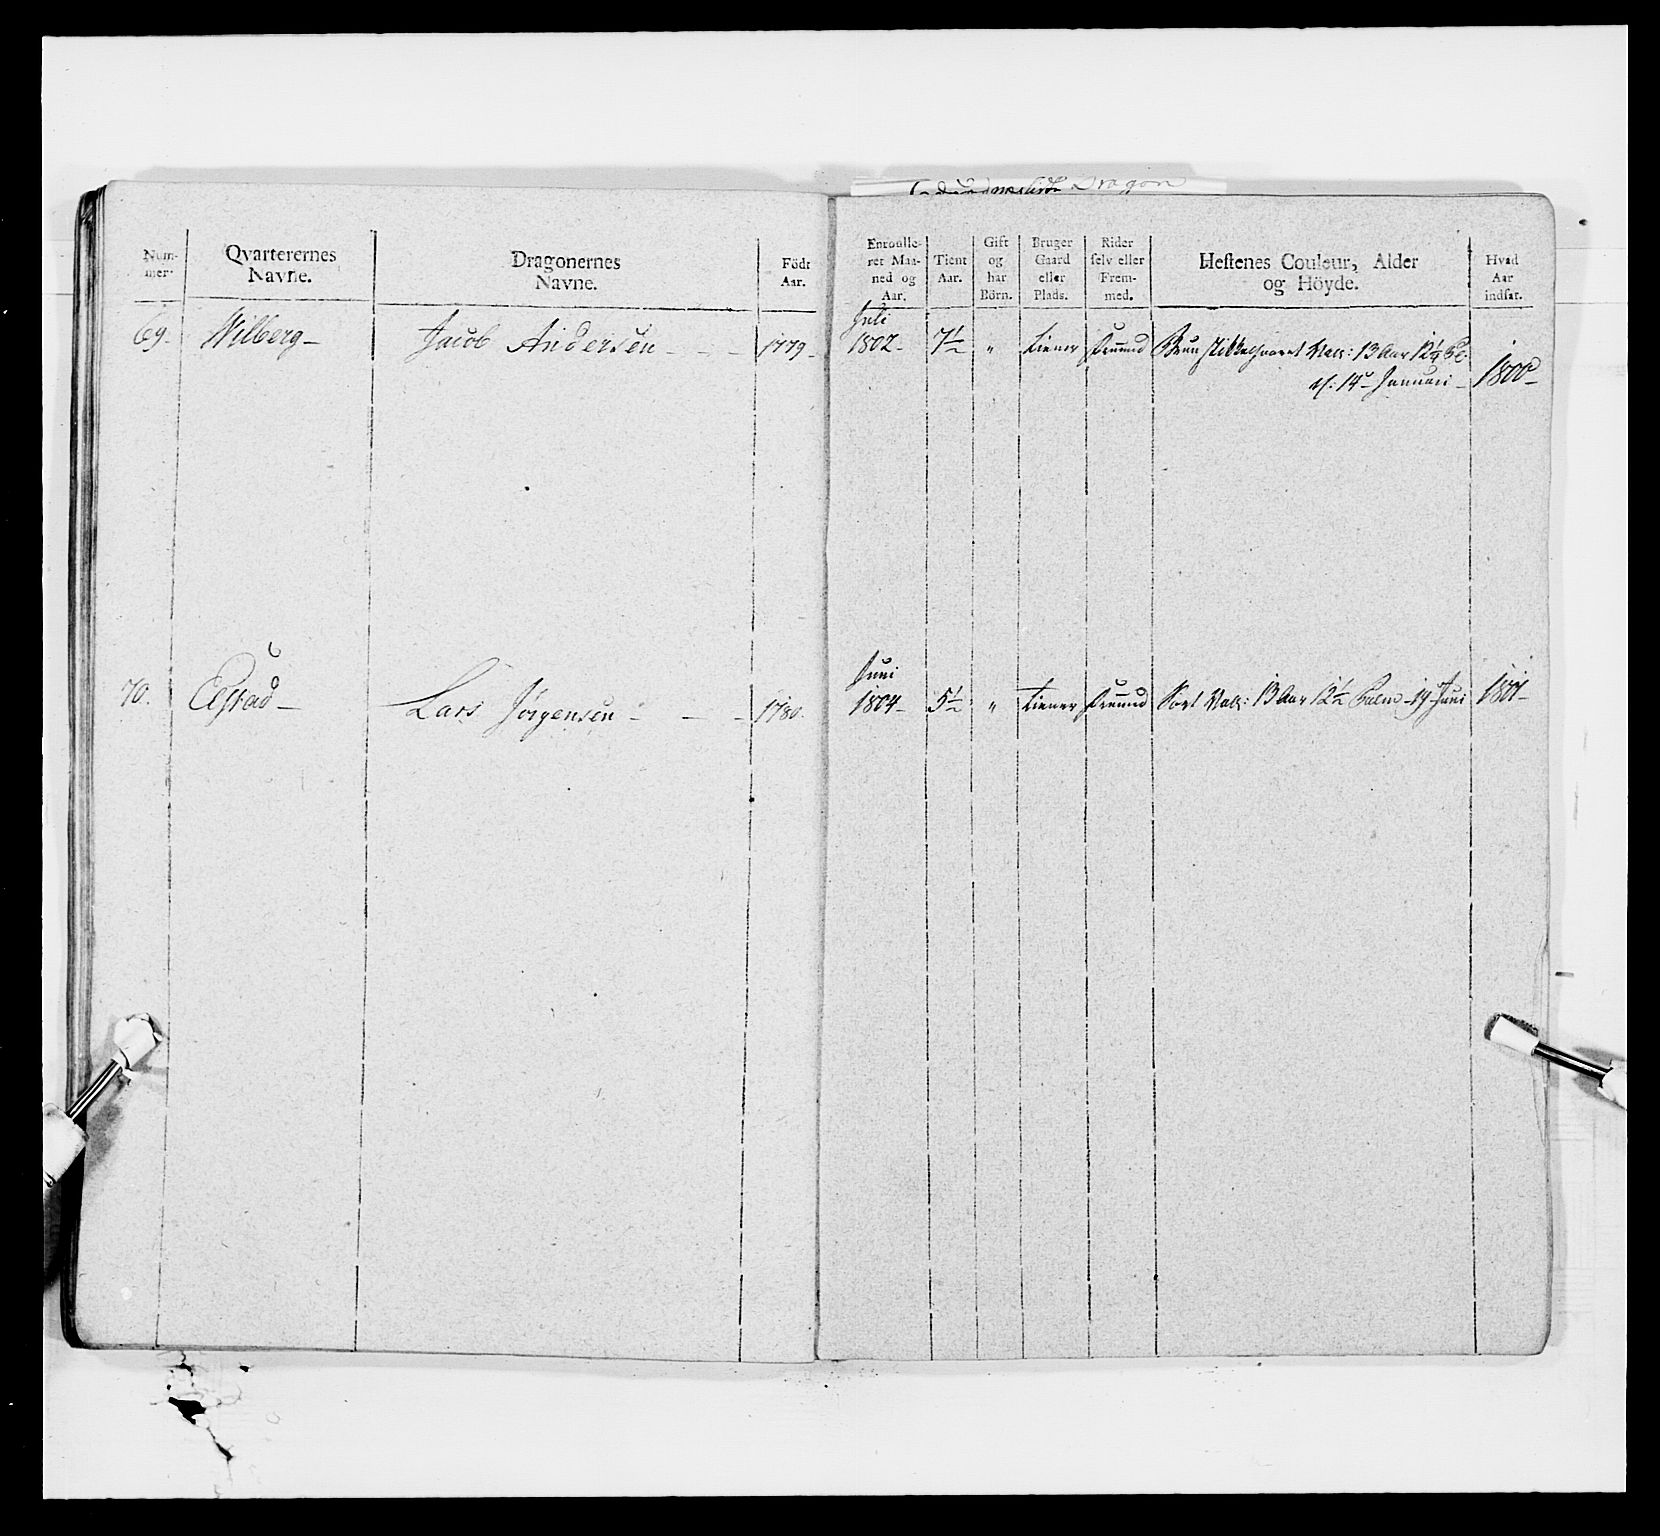 Dragon
Nummer.
Qvarterernes Navne.
Dragonernes Navne.
Födt Aar.
Enroulleret Maaned og Aar.
Tient Aar.
Gift og har Börn.
Bruger Gaard eller Plads.
Rider selv eller Fremmed.
Hestenes Couleur, Alder og Höyde.
Hvad Aar indsat.
69. Wilberg Jacob Andersen - - - 1779 Juli 1802 7½ " tiener fremmd Brun stikkelhaaret Vall: 13 Aar 12¼ P:
14 Januari 1800
70. Lars Jörgensen - - - 1780. Juni 1804 5½ " tiener fremmd Sort Vall: 13 Aar 12½ Palm 19 Juni 1801